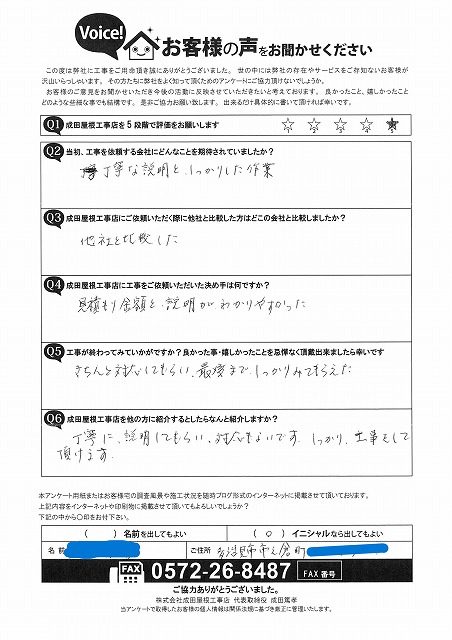 Voice!
お客様の声をお聞かせください
この度は弊社に工事をご用命頂き誠にありがとうございました。 世の中には弊社の存在やサービスをご存知ないお客様が
沢山いらっしゃいます。その方たちに弊社をよく知って頂くためのアンケートにご協力頂けないでしょうか。
お客様のご意見をお聞かせいただき今後の活動に反映させていただきたいと考えております。 良かったこと、嬉しかったこと
どのような些細な事でも結構です。 是非ご協力お願い致します。 出来るだけ具体的に書いて頂ければ幸いです。
Q1 成田屋根工事店を5段階で評価をお願いします ☆ ☆ ☆ ☆ ★
Q2 当初、工事を依頼する会社にどんなことを期待されていましたか?
丁寧な説明と、しっかりした作業
Q3 成田屋根工事店にご依頼いただく際に他社と比較した方はどこの会社と比較しましたか?
他社と比較した
Q4 成田屋根工事店に工事をご依頼いただいた決め手は何ですか?
見積もり金額と、説明がわかりやすかった
Q5 工事が終わってみていかがですか?良かった事・嬉しかったことを忌憚なく頂戴出来ましたら幸いです
きちんと対応してもらい、最後まで、しっかりみてもらえた
Q6 成田屋根工事店を他の方に紹介するとしたらなんと紹介しますか?
丁寧に、説明してもらい、対応もよいです。しっかり、工事をして
頂けます。
本アンケート用紙またはお客様宅の調査風景や施工状況を随時ブログ形式のインターネットに掲載させて頂いております。
上記内容をインターネットや印刷物に掲載させて頂いてもよろしいでしょうか?
下記の中から○印をお付下さい。
( ) 名前を出してもよい ( ○ ) イニシャルなら出してもよい
名前 ご住所 多治見市市之倉町
FAX 0572-26-8487 FAX番号
ご協力ありがとうございました。
株式会社成田屋根工事店 代表取締役 成田篤孝
当アンケートで取得したお客様の個人情報は関係法規に基づき厳正に管理いたします。